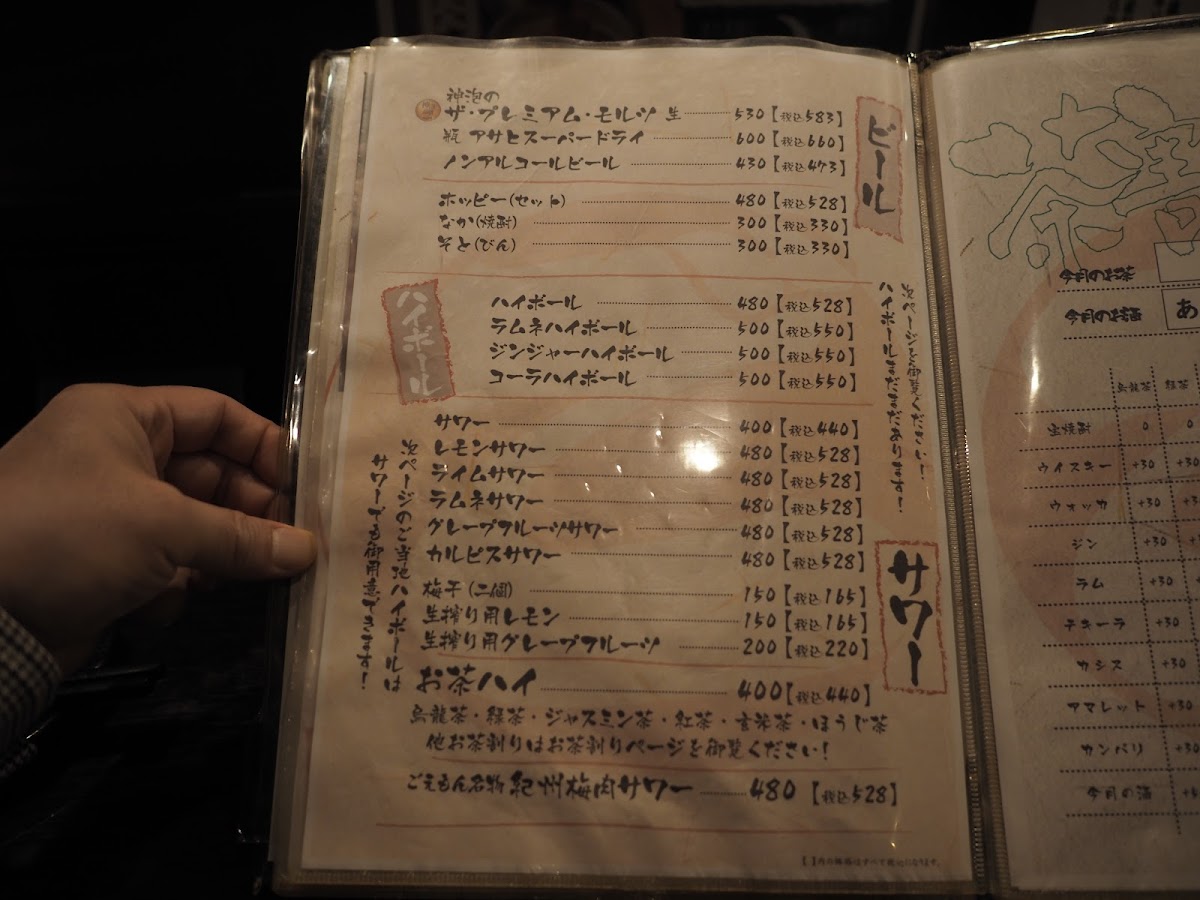 ビール
神泡の
ザ・プレミアム・モルツ 生 530【税込583】
瓶 アサヒスーパードライ 600【税込660】
ノンアルコールビール 430【税込473】
ホッピー(セット) 480【税込528】
なか(焼酎) 300【税込330】
そと(びん) 300【税込330】
ハイボール
ハイボール 480【税込528】
ラムネハイボール 500【税込550】
ジンジャーハイボール 500【税込550】
コーラハイボール 500【税込550】
ハイボールまだまだあります!
次ページを御覧ください!
サワー
サワー 400【税込440】
レモンサワー 480【税込528】
ライムサワー 480【税込528】
ラムネサワー 480【税込528】
グレープフルーツサワー 480【税込528】
カルピスサワー 480【税込528】
梅干(二個) 150【税込165】
生搾り用レモン 150【税込165】
生搾り用グレープフルーツ 200【税込220】
次ページのご当地ハイボールは
サワーでも御用意できます!
お茶ハイ 400【税込440】
烏龍茶・緑茶・ジャスミン茶・紅茶・玄米茶・ほうじ茶
他お茶割りはお茶割りページを御覧ください!
ごえもん名物 紀州梅肉サワー 480【税込528】
【 】内の価格はすべて税込になります。
今月のお茶
今月のお酒 あ
烏龍茶 紅茶
宝焼酎 0 0
ウイスキー +30 +30
ウォッカ +30 +30
ジン +30 +30
ラム +30 +30
テキーラ +30
カシス +30
アマレット +30
カンパリ +30
今月の酒